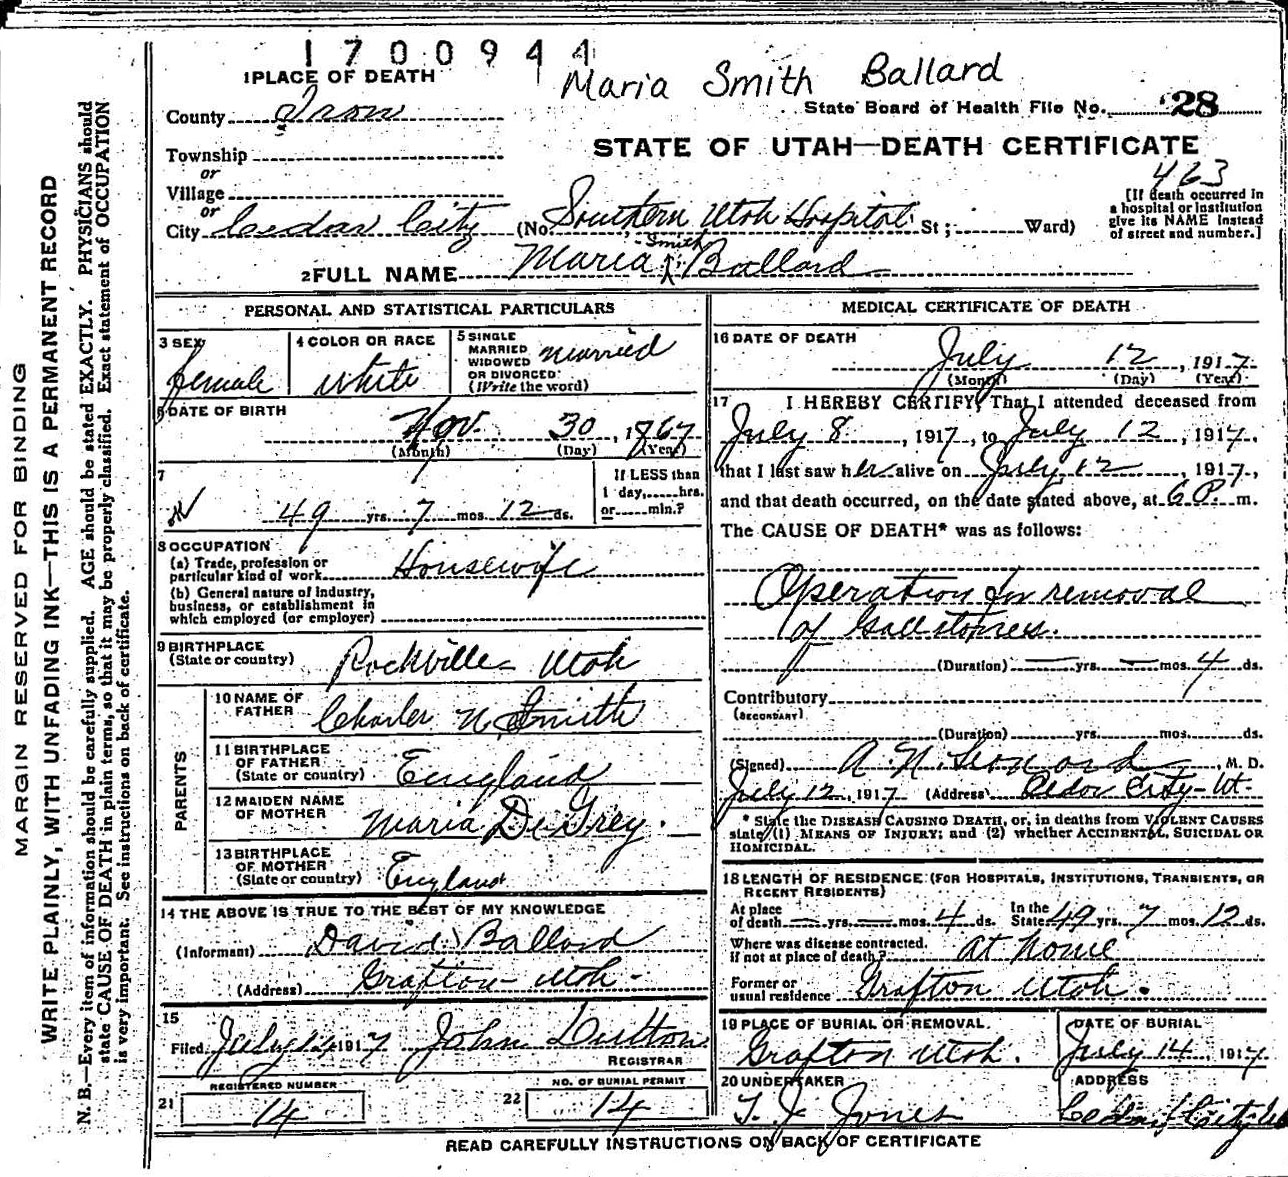 1700944
Maria Smith Ballard
1 PLACE OF DEATH
State Board of Health File No. 28
County Iron
STATE OF UTAH—DEATH CERTIFICATE
Township
or
Village
or
463
[If death occurred in
a hospital or institution
give its NAME instead
of street and number.]
City Cedar City (No Southern Utah Hospital St; Ward)
2 FULL NAME Maria Smith Ballard
PERSONAL AND STATISTICAL PARTICULARS
3 SEX
female
4 COLOR OR RACE
White
5 SINGLE
MARRIED
WIDOWED
OR DIVORCED
(Write the word)
Married
6 DATE OF BIRTH
Nov. 30, 1867
(Month) (Day) (Year)
7
49 yrs. 7 mos. 12 ds.
If LESS than
1 day, hrs.
or min.?
8 OCCUPATION
(a) Trade, profession or
particular kind of work Housewife
(b) General nature of industry,
business, or establishment in
which employed (or employer)
9 BIRTHPLACE
(State or country) Rockville Utah
PARENTS
10 NAME OF
FATHER Charles N. Smith
11 BIRTHPLACE
OF FATHER
(State or country) England
12 MAIDEN NAME
OF MOTHER Maria DeGrey.
13 BIRTHPLACE
OF MOTHER
(State or country) England
14 THE ABOVE IS TRUE TO THE BEST OF MY KNOWLEDGE
(Informant) David Ballard
(Address) Grafton Utah
15
Filed July 14 1917 John Dutton
REGISTRAR
REGISTERED NUMBER
21 14
NO. OF BURIAL PERMIT
22 14
MEDICAL CERTIFICATE OF DEATH
16 DATE OF DEATH
July 12, 1917
(Month) (Day) (Year)
17 I HEREBY CERTIFY, That I attended deceased from
July 8, 1917, to July 12, 1917,
that I last saw her alive on July 12, 1917,
and that death occurred, on the date stated above, at 6 P. m.
The CAUSE OF DEATH* was as follows:
Operation for removal
of Gallstones.
(Duration) — yrs. — mos. 4 ds.
Contributory
(SECONDARY)
(Duration) yrs. mos. ds.
(Signed) A. N. Leonard, M. D.
July 12, 1917 (Address) Cedar City-Ut-
* State the DISEASE CAUSING DEATH, or, in deaths from VIOLENT CAUSES
state (1) MEANS OF INJURY; and (2) whether ACCIDENTAL, SUICIDAL OR
HOMICIDAL.
18 LENGTH OF RESIDENCE (FOR HOSPITALS, INSTITUTIONS, TRANSIENTS, OR
RECENT RESIDENTS)
At place
of death — yrs. — mos. 4 ds.
In the
State 49 yrs. 7 mos. 12 ds.
Where was disease contracted.
if not at place of death? At home
Former or
usual residence Grafton Utah.
19 PLACE OF BURIAL OR REMOVAL.
Grafton Utah.
DATE OF BURIAL
July 14, 1917
20 UNDERTAKER
T. J. Jones
ADDRESS
Cedar City Ut
READ CAREFULLY INSTRUCTIONS ON BACK OF CERTIFICATE
MARGIN RESERVED FOR BINDING
WRITE PLAINLY, WITH UNFADING INK—THIS IS A PERMANENT RECORD
N. B.—Every item of information should be carefully supplied. AGE should be stated EXACTLY. PHYSICIANS should
state CAUSE OF DEATH in plain terms, so that it may be properly classified. Exact statement of OCCUPATION
is very important. See instructions on back of certificate.